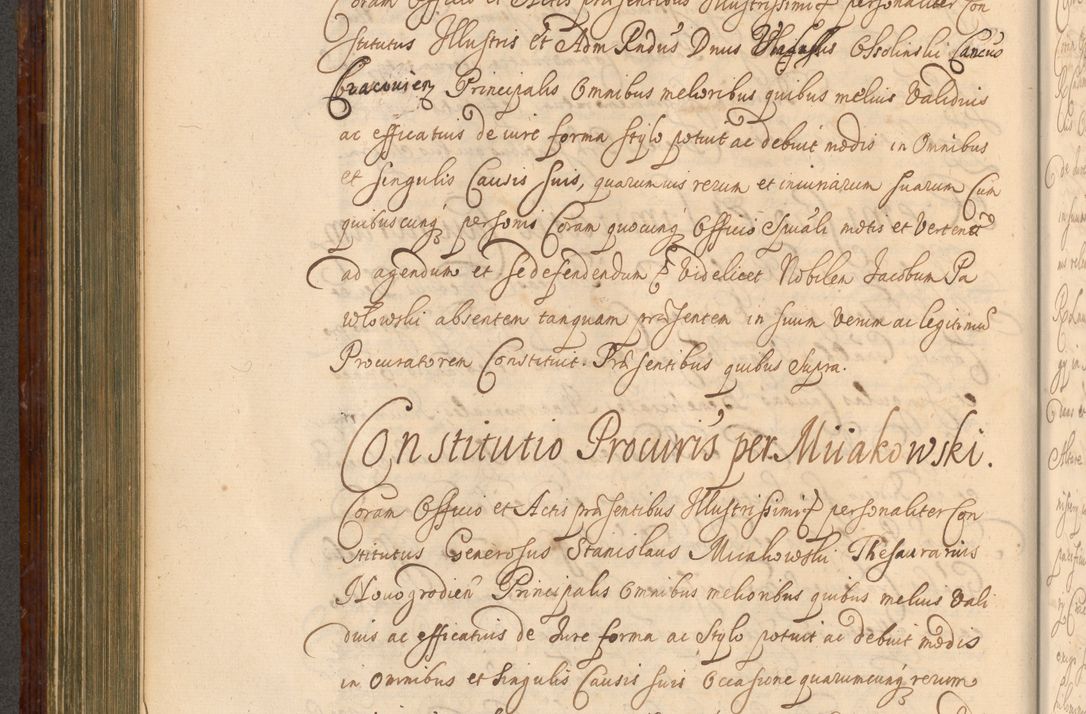 Coram Officio et Actis præsentibus Illustrissimi personaliter Con
stitutus Illustris et Adm Rndus Dnus Ossolinski Cancus
Cracovien Principalis Omnibus melioribus quibus melius validius
ac efficatius de iure forma stylo potuit ac debuit modis in Omnibus
et singulis Causis suis, quarumvis rerum et iniuriarum suarum Cum
quibuscunq personis Coram quocunq Officio Spuali motis et vertent
ad agendum et se defendendum videlicet Nobilem Jacobum Pa
włowski absentem tanquam præsentem in suum verum ac legitimu
Procuratorem Constituit. Præsentibus quibus supra.
Constitutio Procuris per Miiakowski.
Coram Officio et Actis præsentibus Illustrissimi personaliter Con
stitutus Generosus Stanislaus Miiakowski Thesaurarius
Novogrodien Principalis omnibus melioribus quibus melius vali
dius ac efficatius de Iure forma ac Stylo potuit ac debuit modis
in omnibus et singulis Causis suis Occasione quarumcunq rerum